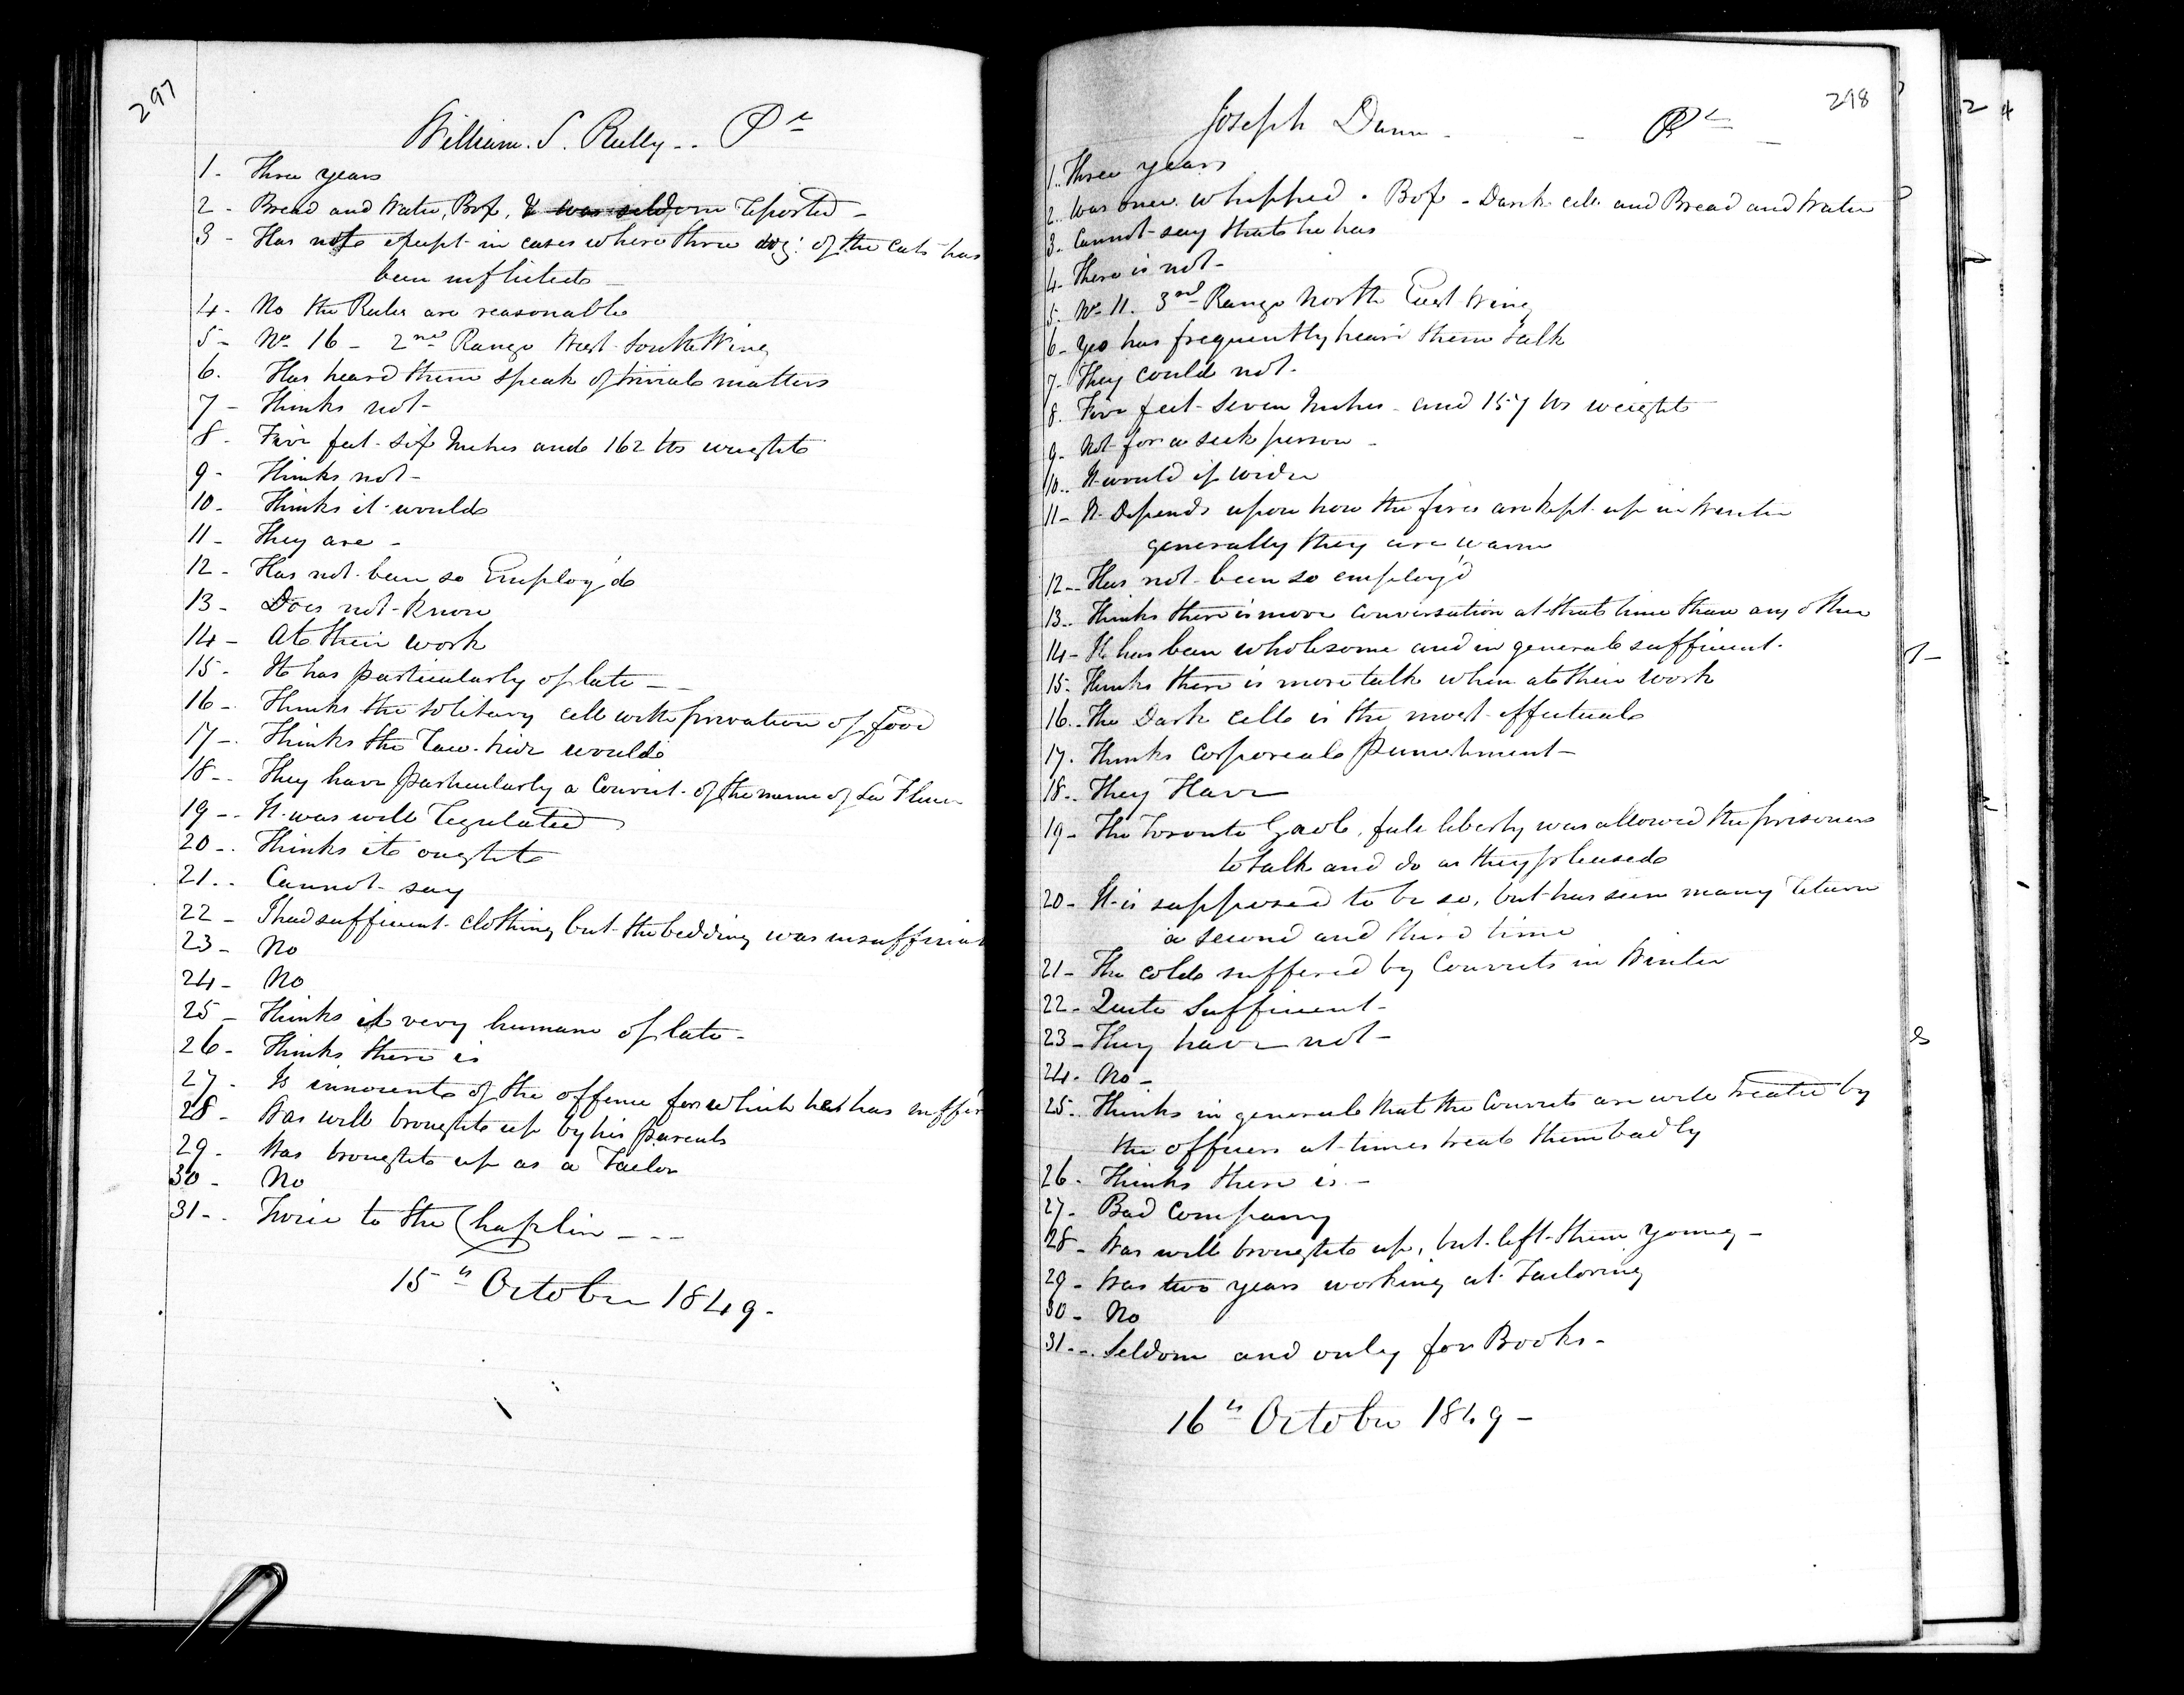 297
William. S. Relly.. Pr
1 - Three years
2 - Bread and Water, Box, & was seldom reported -
3 - Has not except in cases where three doz: of the Cats has
been inflicted -
4 - No the Rules are reasonable
5 - No 16 - 2nd Range West South Wing
6. Has heard them speak of trivial matters
7 - Thinks not -
8 - Five feet six Inches and 162 lbs weight
9 - Thinks not -
10 - Thinks it would
11 - They are -
12 - Has not been so Employ'd
13 - Does not know
14 - At their work
15 - It has particularly of late -
16 - Thinks the Solitary cell with privation of food
17 - Thinks the Raw-hide would
18 - They have particularly a Convict of the name of La Fleur
19 - It was well regulated
20 - Thinks it ought
21 .. Cannot say
22 - I had sufficient clothing but the bedding was insufficient
23 - No
24 - No
25 - Thinks it very humane of late -
26 - Thinks there is
27 - Is innocent of the offence for which he has suffer
28 - Was well brought up by his parents
29 - Was brought up as a Tailor
30 - No
31 - Twice to the Chaplin ---
15th October 1849 -
298
Joseph Dunn - Pr -
1 .. Three years
2 .. Was once whipped. Box - Dark cell and Bread and Water
3 - Cannot say that he has
4 - There is not -
5 - No 11. 3rd Range North East Wing
6 - Yes has frequently heard them talk
7 - They could not -
8. Five feet seven Inches and 157 lbs weight
9 - Not for a sick person -
10 .. It would if wider
11 - It Depends upon how the fires are kept up in Winter
generally they are warm
12 - Has not been so employ'd
13 .. Thinks there is more Conversation at that time than any other
14 - It has been wholesome and in general sufficient -
15 - Thinks there is more talk when at their work
16 .. The Dark cell is the most effectual
17. Thinks Corporeal Punishment -
18 .. They Have
19 - The Toronto Gaol, full liberty was allowed the prisoners
to talk and do as they pleased
20 - It is supposed to be so, but has seen many return
a second and third time
21 - The cold suffered by Convicts in Winter
22 - Quite Sufficient -
23 - They have not -
24. No -
25. Thinks in general that the Convicts are well treated by
the officers at times treat them badly
26 - Thinks there is -
27 - Bad Company
28 - Was well brought up, but left them young -
29 - Was two years working at Tailoring
30 - No
31 .. Seldom and only for Books -
16th October 1849 -